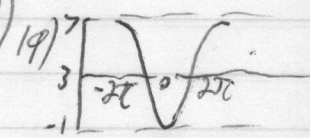 |φ)
7
3 -2π 0 2π
-1